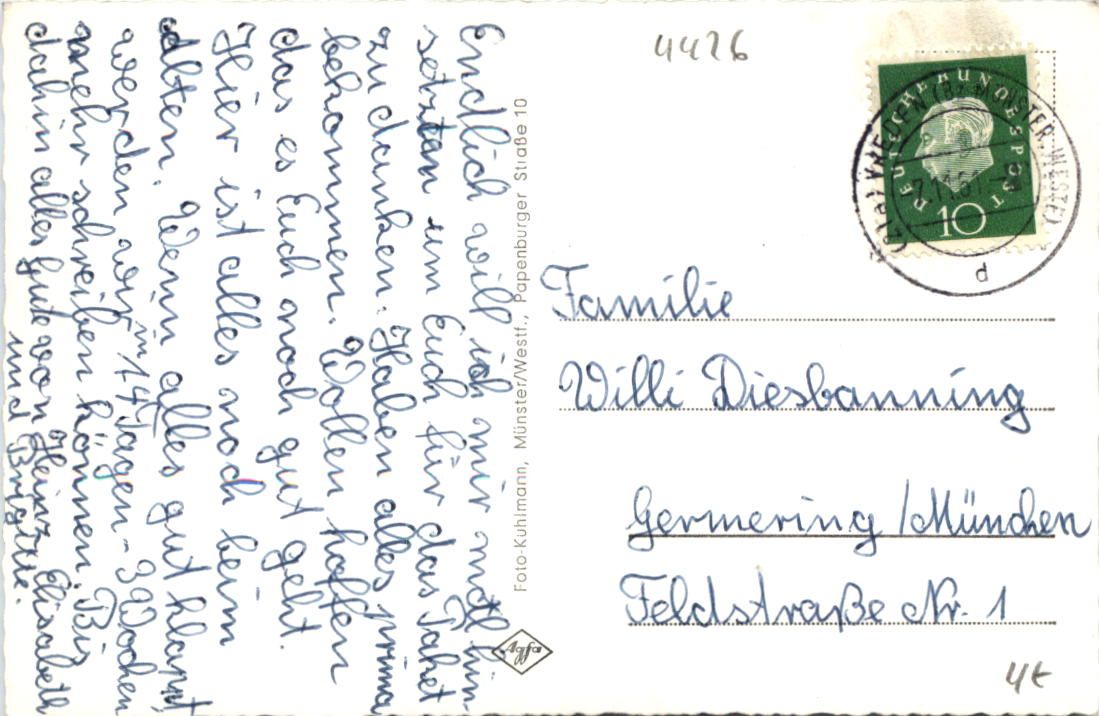 Endlich will ich mir mal hin-
setzten um Euch für das Paket
zu danken. Haben alles prima
bekommen. Wollen hoffen
das es Euch noch gut geht.
Hier ist alles noch beim
alten. Wenn alles gut klappt
werden wir in 14 Tagen - 3 Wochen
mehr schreiben können. Bis
dahin alles Gute von Heinz Elisabeth
und Brigitte.
Foto-Kuhlmann, Münster/Westf., Papenburger Straße 10
Agfa
4426
DEUTSCHE BUNDESPOST
10
VREDEN (BZ MÜNSTER, WESTF)
7.11.61
d
Familie
Willi Diesbanning
Germering / München
Feldstraße Nr. 1
4t